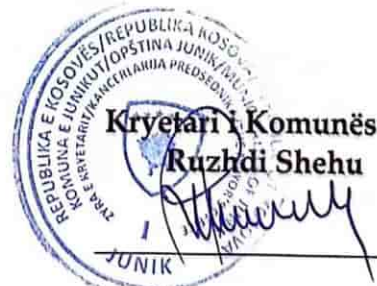 REPUBLIKA E KOSOVËS/REPUBLIKA KOSOVA
KOMUNA E JUNIKUT/OPŠTINA JUNIK/MUNI
ZYRA E KRYETARIT/KANCELARIJA PREDSEDNIK
I
JUNIK
Kryetari i Komunës
Ruzhdi Shehu